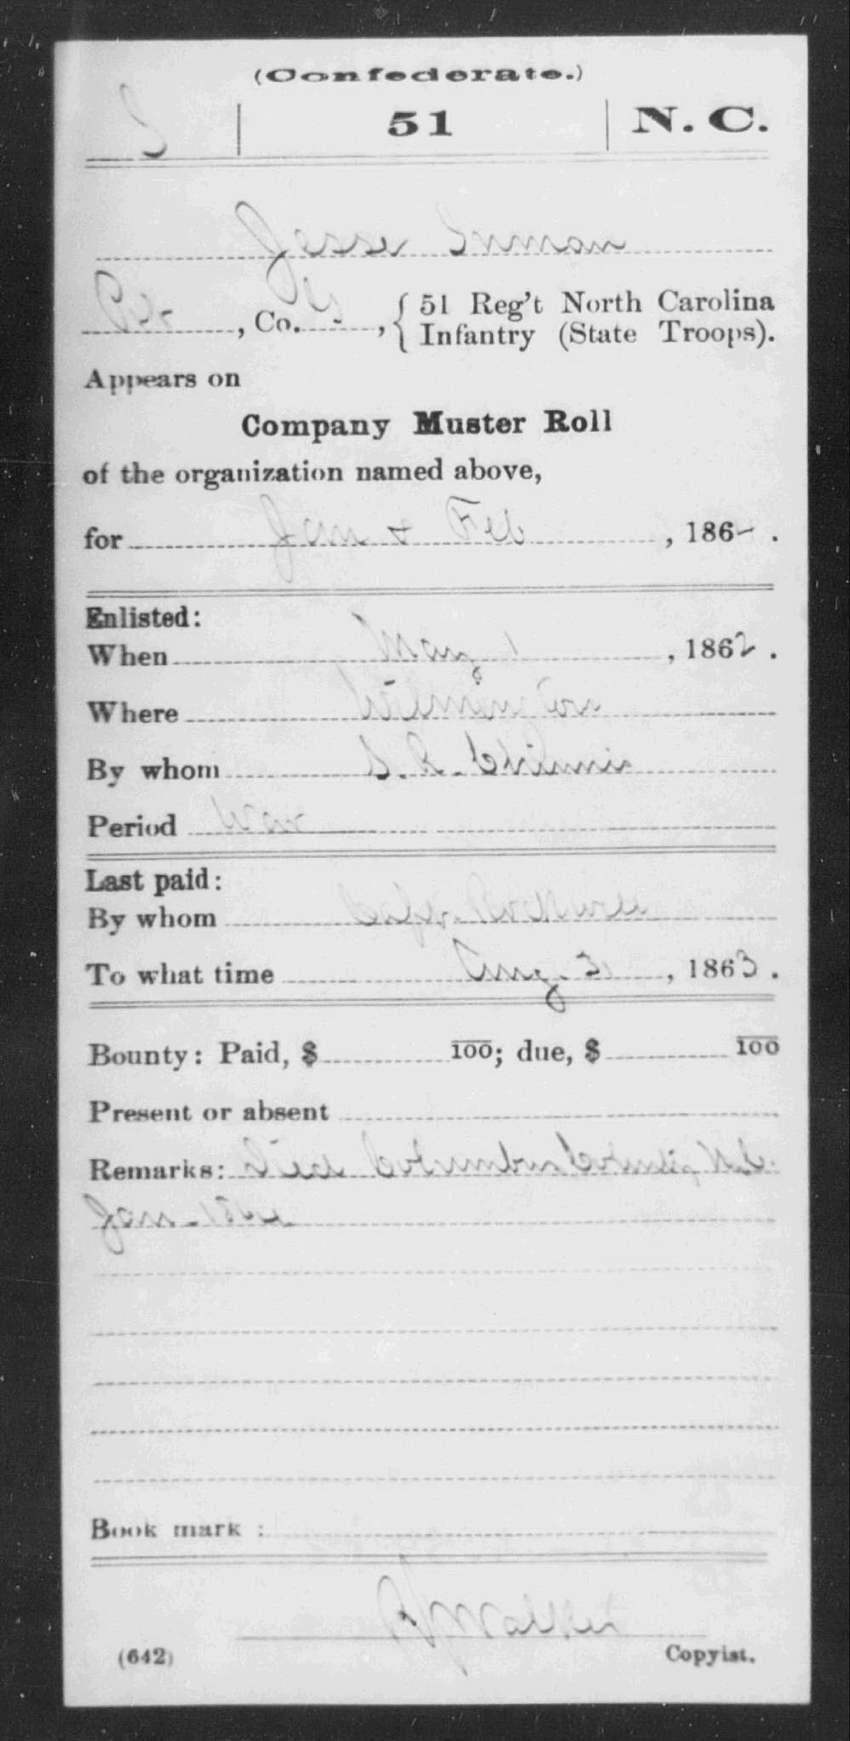 (Confederate.)
51 N. C.
Jesse Inman
Pvt, Co. , 51 Reg't North Carolina
Infantry (State Troops).
Appears on
Company Muster Roll
of the organization named above,
for Jan & Feb , 186 .
Enlisted:
When May 1 , 1862 .
Where Wilmington
By whom S. R. Chinnis
Period War
Last paid:
By whom Capt.
To what time Aug. 31 , 1863 .
Bounty: Paid, $ 100; due, $ 100
Present or absent
Remarks: Died Columbus County, N.C.
Jan.
Book mark :
(642) Copyist.